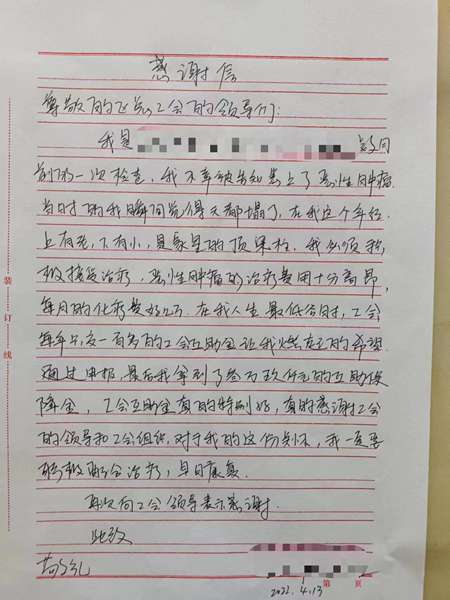 感谢信
尊敬的飞兆工会的领导们:
我是
前的一次检查,我不幸被告知患上了恶性肿瘤
当时的我瞬间觉得天都塌了,在我这个年纪
上有老,下有小,是家里的顶梁柱,我必须积
极接受治疗,恶性肿瘤的治疗费用十分高昂,
每月的化疗费好几万.在我人生最低谷时,工会
每年只交一百多的工会互助金让我燃起了的希望
通过申报,最后我拿到了叁万玖仟元的互助保
障金,工会互助金真的特别好,真的感谢工会
的领导和工会组织,对于我的这份关怀,我一定要
积极配合治疗,早日康复.
再次向工会领导表示感谢.
此致
敬礼
2022.4.13
第 页
装订线